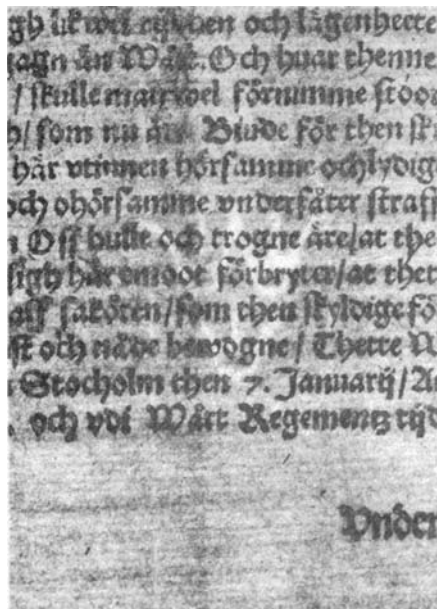 och lägenhette
än Wått. Och huar thenne
/ skulle man wel förnumme
/ som nu än Biude för then
här vtinnen hörsamme och lydig
och ohörsamme vndersåter straff
Oss hulle och trogne äre/at the
sigh här emoot förbryter/at thet
saköten/som then skyldige fö
och nåde bewogne/ Thette
Stocholm then 7. Januarij/
och vdi Wårt Regementz tijd
Vnder